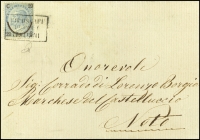 Onorevole
Sig. Corrado di Lorenzo Borgia
Marchese del Castelluccio
Noto